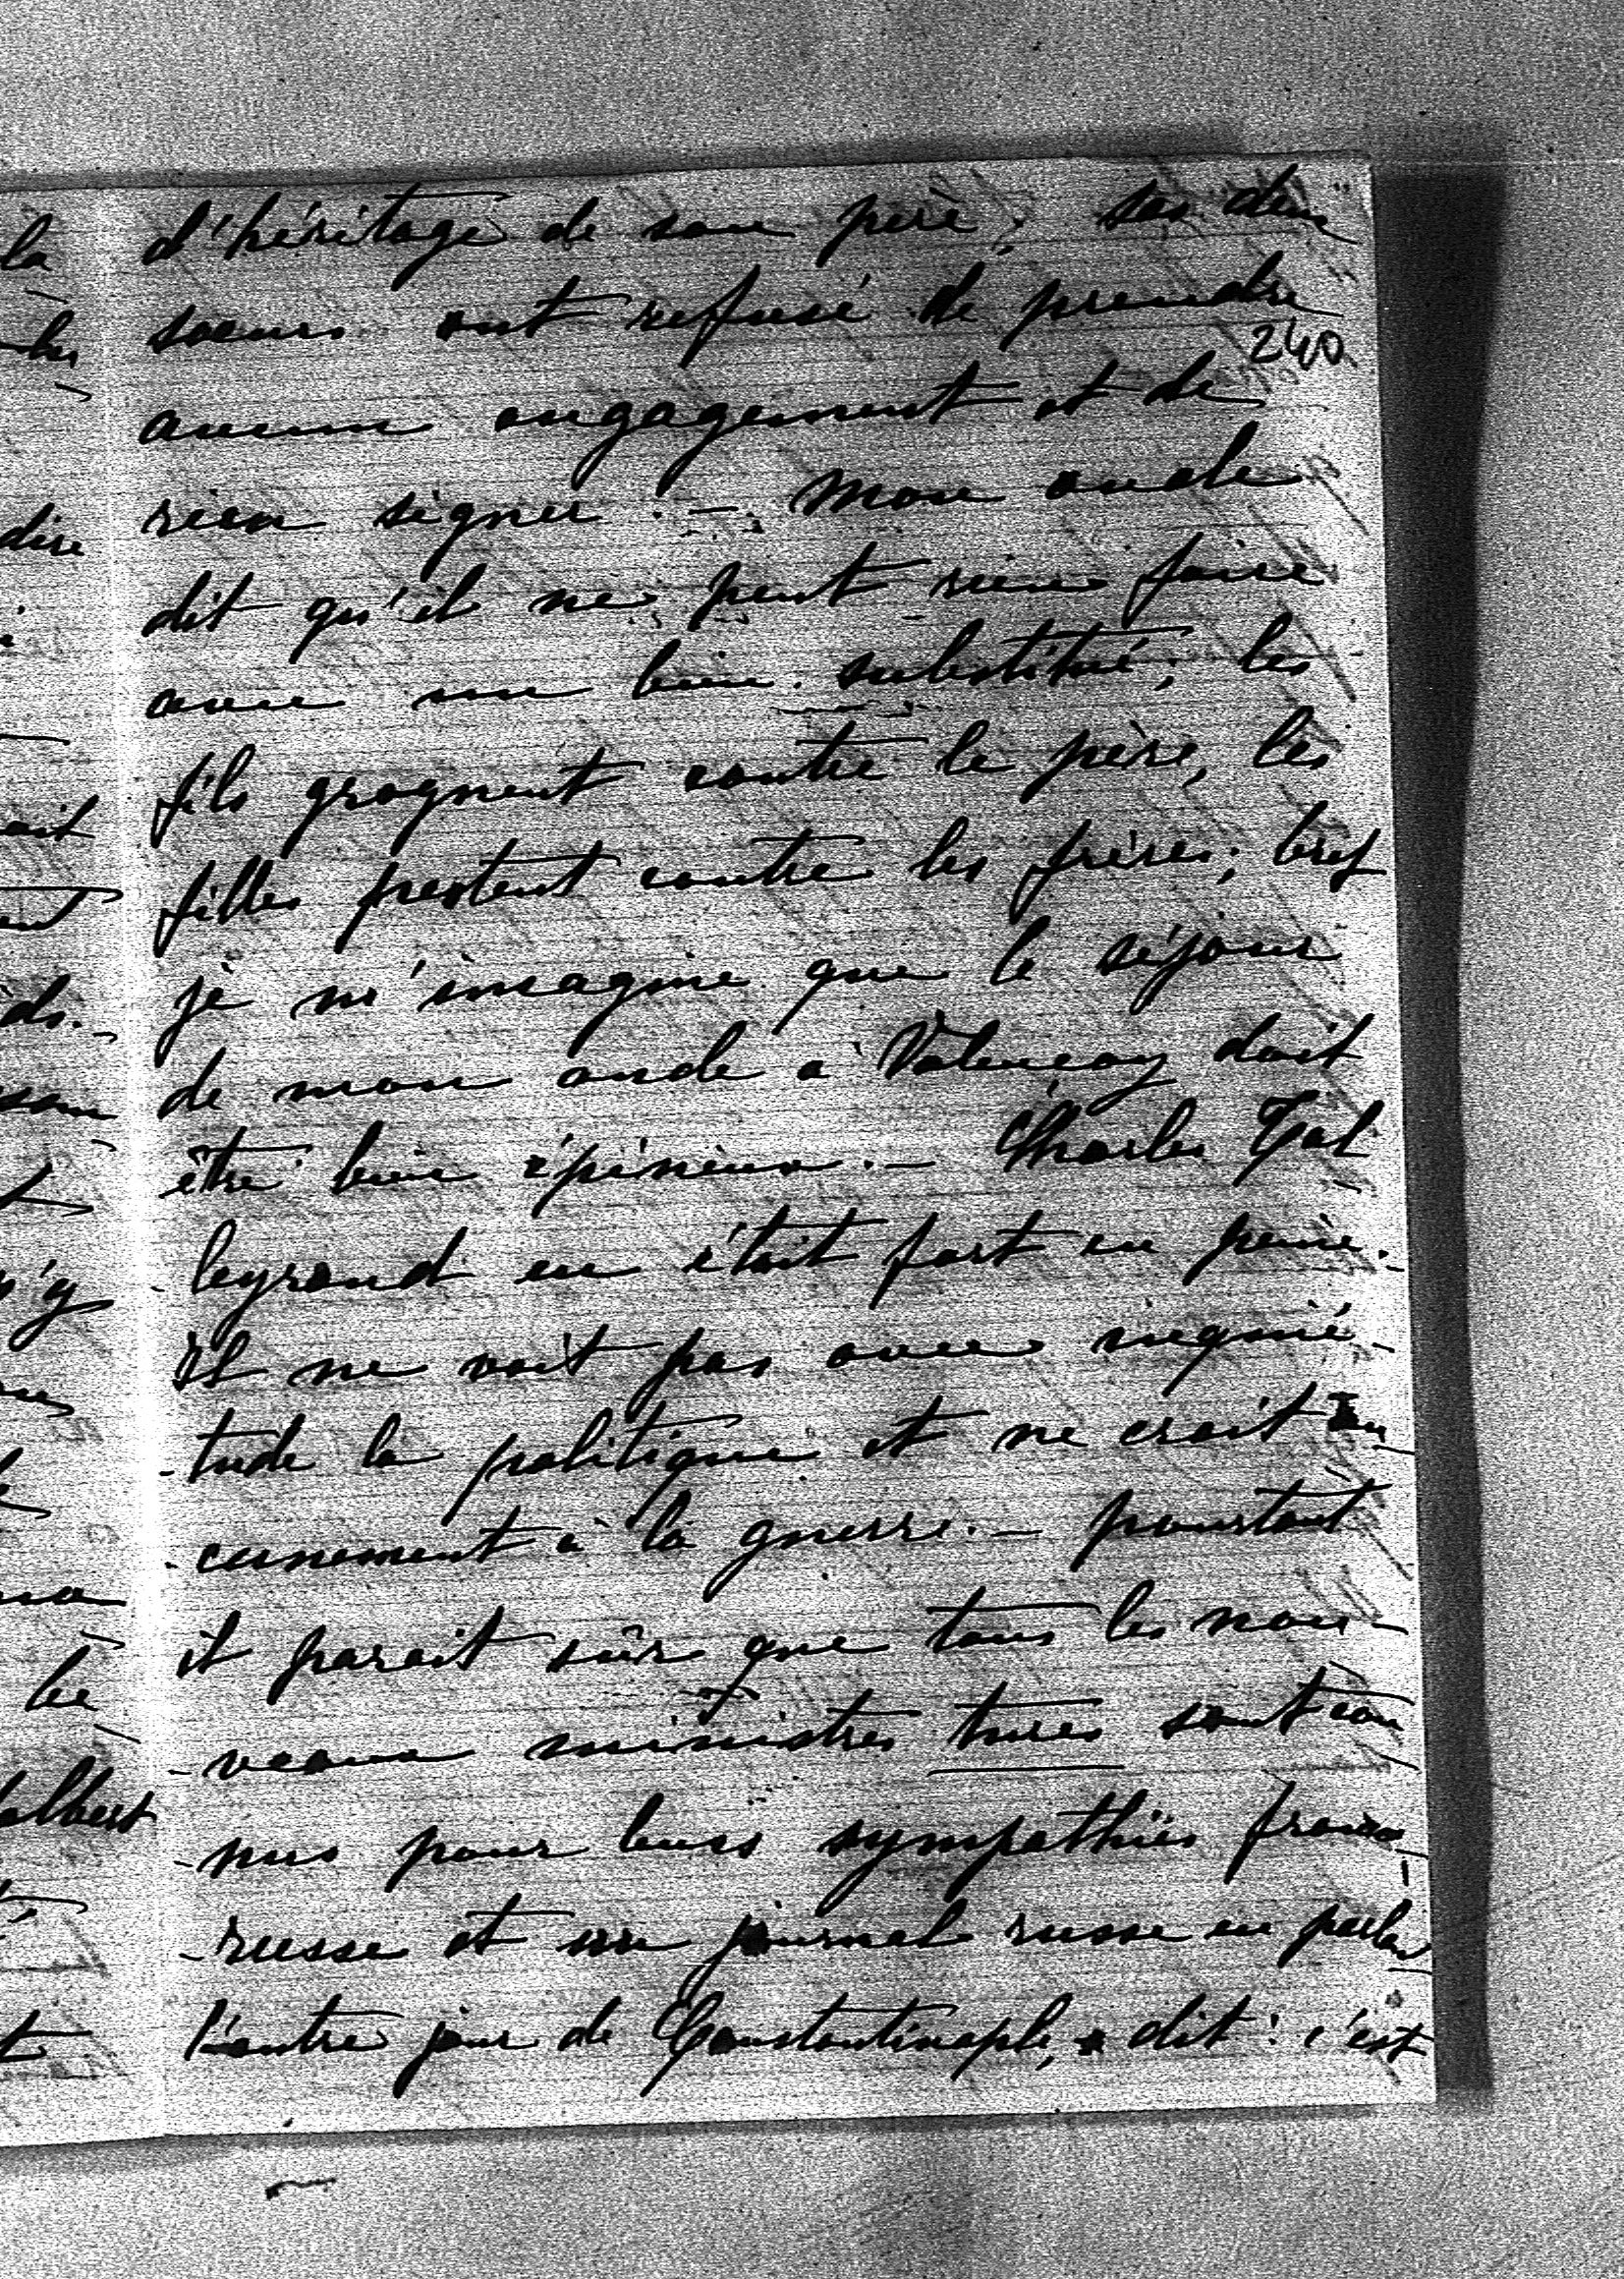 d'héritage de son père; ses deux
soeurs ont refusé de prendre
240
aucun engagement et de
rien signer. — Mon oncle
dit qu'il ne peut rien faire
avec un bien substitué; les
fils grognent contre le père, les
filles pestent contre les frères; bref
je m'imagine que le séjour
de mon oncle à Valençay doit
être bien épineux. — Charles Tal
-leyrand en était fort en peine.
Il ne voit pas avec inquié-
-tude la politique et ne croit au-
-cunement à la guerre. — pourtant
il parait sûr que tous les nou-
-veaux ministres turcs sont con
-nus pour leurs sympathies franco-
-russe et un journal russe en parlant
l'autre jour de Constantinople, a dit: c'est
la
dire
ait
ds.
son
n'y
le